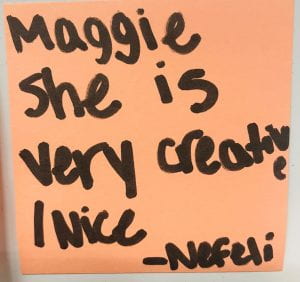 Maggie
She is
very creative
/ Nice
-Nefeli